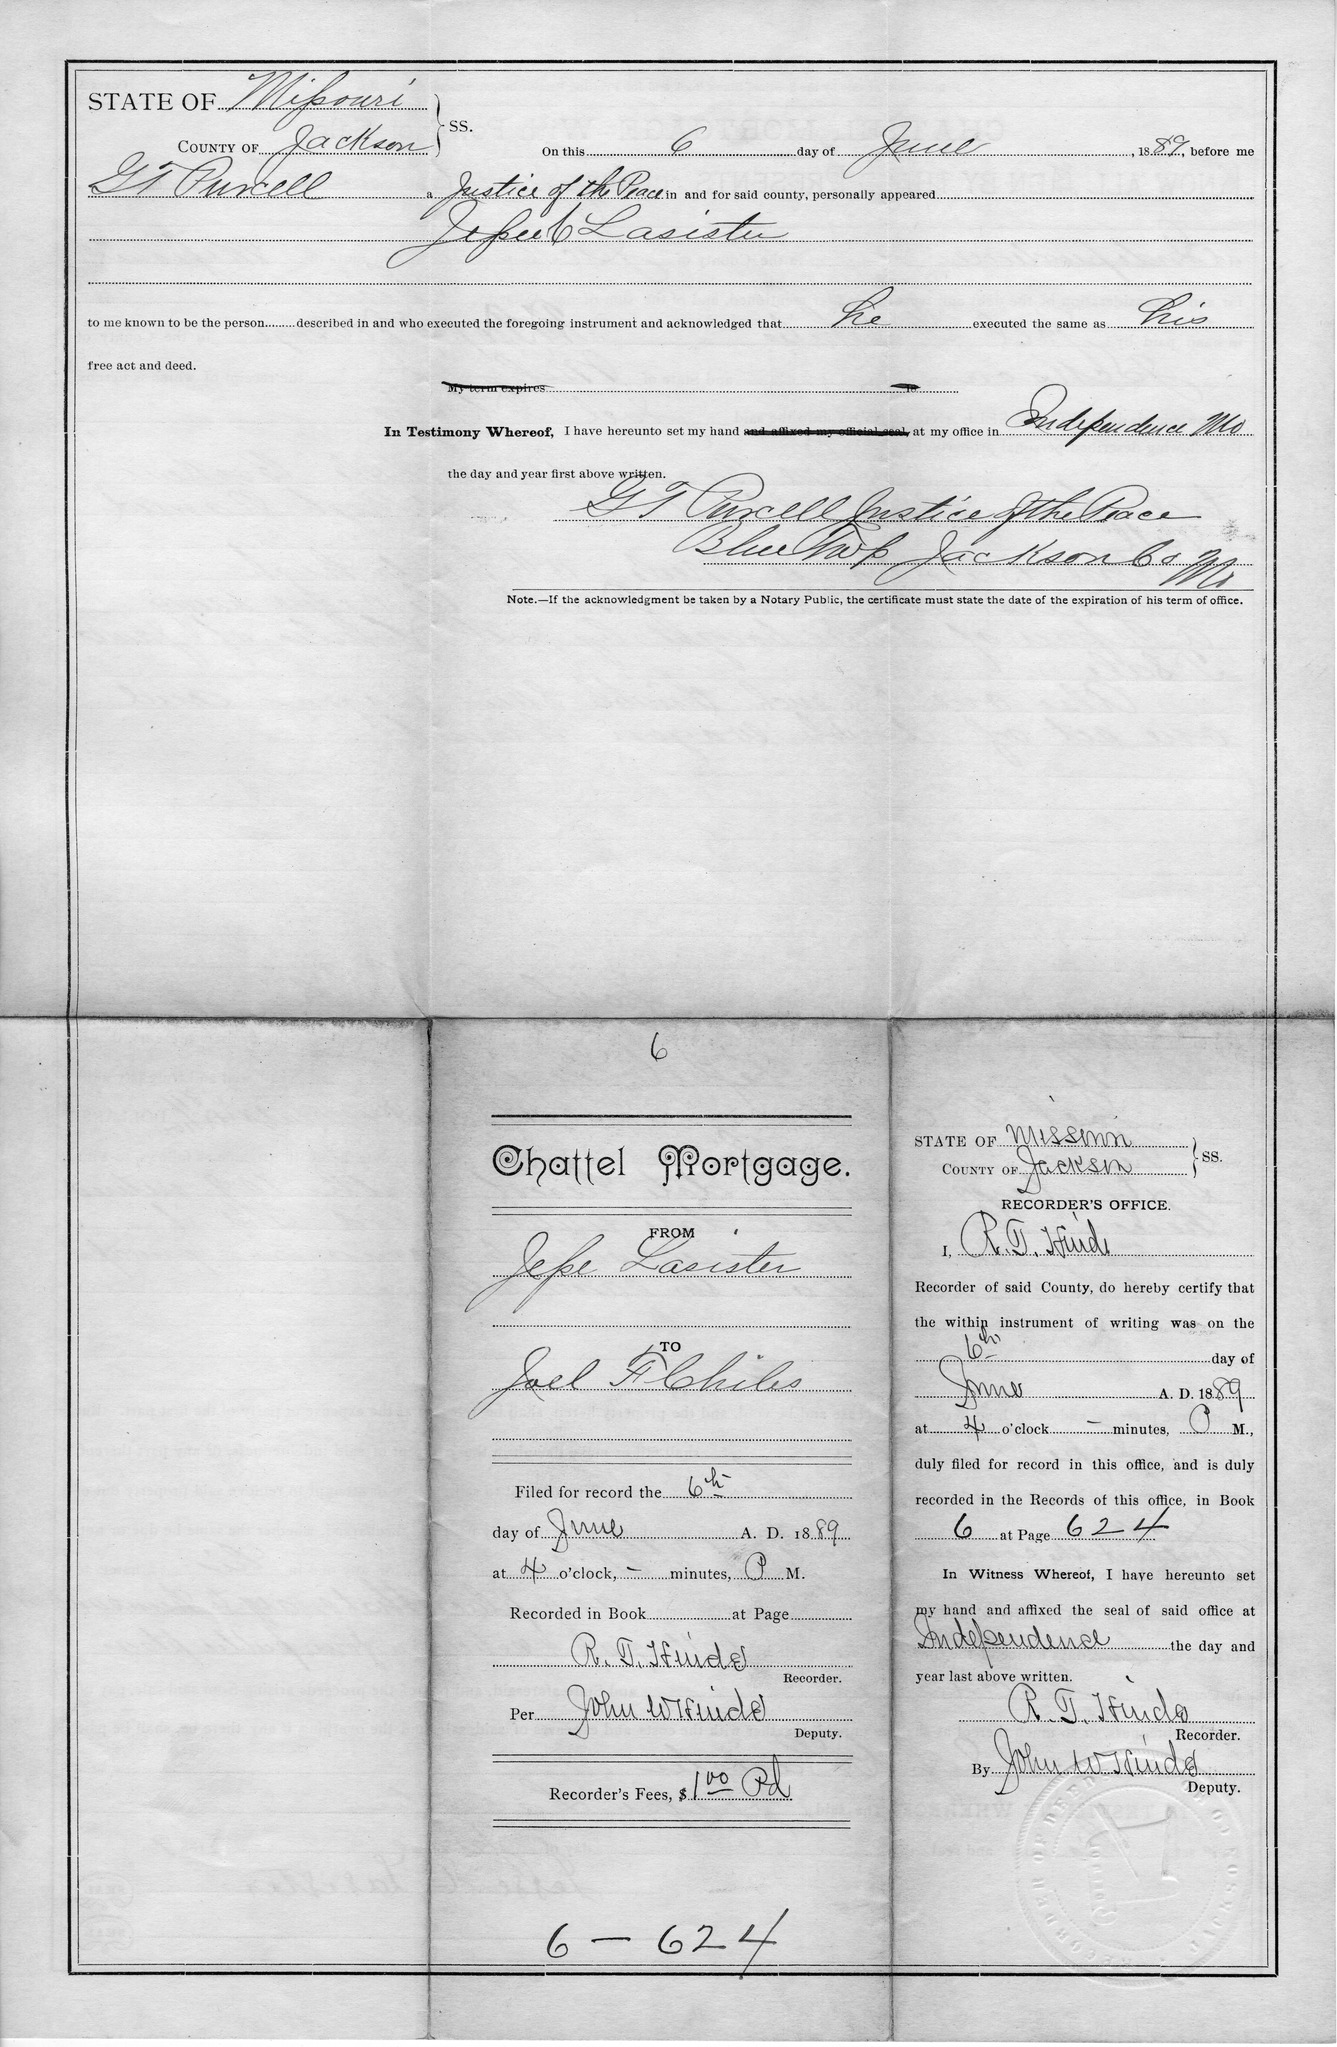 STATE OF Missouri
COUNTY OF Jackson } SS.
On this 6 day of June, 1889, before me
G T Purcell a Justice of the Peace in and for said county, personally appeared
Jesse C Lasister
to me known to be the person described in and who executed the foregoing instrument and acknowledged that he executed the same as his
free act and deed.
My term expires 18
In Testimony Whereof, I have hereunto set my hand and affixed my official seal, at my office in Independence Mo
the day and year first above written.
G T Purcell Justice of the Peace
Blue Twp Jackson Co Mo
Note.—If the acknowledgment be taken by a Notary Public, the certificate must state the date of the expiration of his term of office.
6
Chattel Mortgage.
FROM
Jesse Lasister
TO
Joel F Chiles
Filed for record the 6th
day of June A. D. 1889
at 4 o'clock, - minutes, P M.
Recorded in Book at Page
R. T. Hinde
Recorder.
Per John W Hinde
Deputy.
Recorder's Fees, $1 00 Pd
6 - 624
STATE OF Missouri
COUNTY OF Jackson } SS.
RECORDER'S OFFICE.
I, R. T. Hinde
Recorder of said County, do hereby certify that
the within instrument of writing was on the
6th day of
June A. D. 1889
at 4 o'clock - minutes, P M.,
duly filed for record in this office, and is duly
recorded in the Records of this office, in Book
6 at Page 624
In Witness Whereof, I have hereunto set
my hand and affixed the seal of said office at
Independence the day and
year last above written.
R. T. Hinde
Recorder.
By John W. Hinde
Deputy.